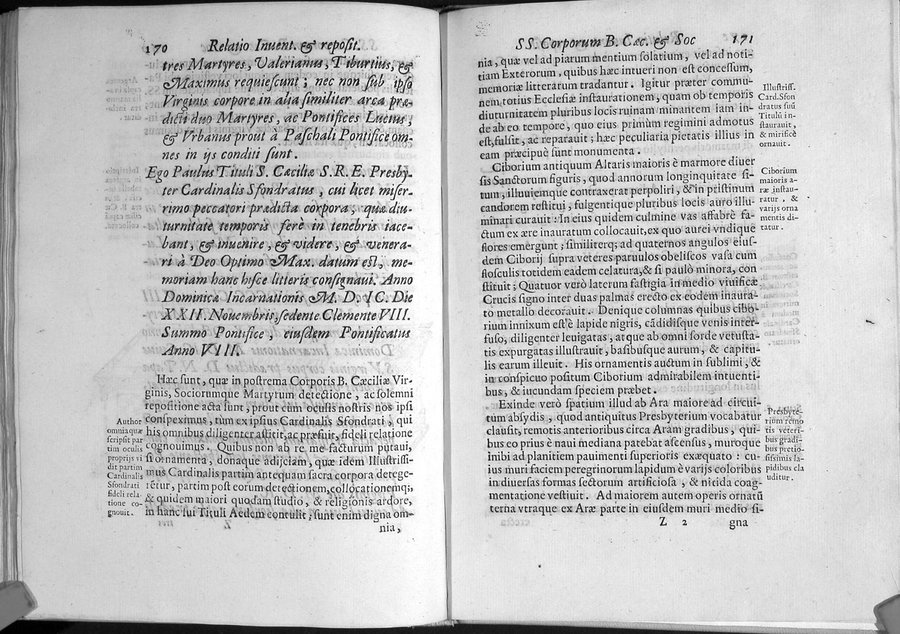 170 Relatio Invent. & reposit.
tres Martyres, Valerianus, Tiburtius, &
Maximus requiescunt; nec non sub ipso
Virginis corpore in alia similiter arca præ-
dicti duo Martyres, ac Pontifices Lucius,
& Vrbanus prout à Paschali Pontifice om-
nes in ijs conditi sunt.
Ego Paulus Tituli S. Cæciliæ S. R. E. Presby-
ter Cardinalis Sfondratus, cui licet miser-
rimo peccatori prædicta corpora; quæ diu-
turnitate temporis ferè in tenebris iace-
bant, & inuenire, & videre, & venera-
ri à Deo Optimo Max. datum est, me-
moriam hanc hisce litteris consignaui. Anno
Dominicæ Incarnationis M. D. IC. Die
XXII. Nouembris, sedente Clemente VIII.
Summo Pontifice, eiusdem Pontificatus
Anno VIII.
Hæc sunt, quæ in postrema Corporis B. Cæciliæ Vir-
ginis, Sociorumque Martyrum detectione, ac solemni
repositione acta sunt, prout cum oculis nostris nos ipsi
conspeximus, tùm ex ipsius Cardinalis Sfondrati, qui
his omnibus diligenter astitit, ac præfuit, fideli relatione
cognouimus. Quibus non ab re me facturum putaui,
si ornamenta, donaque adijciam, quæ idem Illustrissi-
mus Cardinalis partim antequam sacra corpora detege-
retur, partim post eorum detectionem, collocationemq;,
& quidem maiori quodam studio, & religionis ardore,
in hanc sui Tituli Aedem contulit, sunt enim digna om-
nia,
Author
omnia quæ
scripsit par
tim oculis
proprijs vi
dit partim
Cardinalis
Sfondrati
fideli rela
tione co-
gnouit.
SS. Corporum B. Cæc. & Soc 171
nia, quæ vel ad piarum mentium solatium, vel ad noti-
tiam Exterorum, quibus hæc intueri non est concessum,
memoriæ litterarum tradantur. Igitur præter commu-
nem totius Ecclesiæ instaurationem, quam ob temporis
diuturnitatem pluribus locis ruinam minantem iam in-
de ab eo tempore, quo eius primùm regimini admotus
est, fulsit, ac reparauit; hæc peculiaria pietatis illius in
eam præcipuè sunt monumenta.
Ciborium antiquum Altaris maioris è marmore diuer
sis Sanctorum figuris, quod annorum longinquitate si-
tum, illuuiemque contraxerat perpoliri, & in pristinum
candorem restitui, fulgentique pluribus locis auro illu-
minari curauit: In eius quidem culmine vas affabrè fa-
ctum ex ære inauratum collocauit, ex quo aurei vndique
flores emergunt; similiterq; ad quaternos angulos eius-
dem Ciborij supra veteres paruulos obeliscos vasa cum
flosculis totidem eadem cælatura, & si paulò minora, con
stituit; Quatuor verò laterum fastigia in medio viuificæ
Crucis signo inter duas palmas erecto ex eodem inaura-
to metallo decorauit. Denique columnas quibus cibo-
rium innixum est è lapide nigris, cãdidisque venis inter-
fuso, diligenter leuigatas, atque ab omni sorde vetusta-
tis expurgatas illustrauit, basibusque aurum, & capitu-
lis earum illeuit. His ornamentis auctum in sublimi, &
in conspicuo positum Ciborium admirabilem intuenti-
bus, & iucundam speciem præbet.
Exinde verò spatium illud ab Ara maiore ad circui-
tum absydis, quod antiquitus Presbyterium vocabatur
clausit, remotis anterioribus circa Aram gradibus, qui-
bus eo prius è naui mediana patebat ascensus, muroque
inibi ad planitiem pauimenti superioris exæquato: cu-
ius muri faciem peregrinorum lapidum è varijs coloribus
in diuersas formas sectorum artificiosa, & nitida coag-
mentatione vestiuit. Ad maiorem autem operis ornatũ
terna vtraque ex Aræ parte in eiusdem muri medio si-
Z 2 gna
Illustriss.
Card. Sfon
dratus suũ
Titulũ in-
staurauit,
& mirificè
ornauit.
Ciborium
maioris a-
ræ instau-
ratur, &
varijs orna
mentis di-
tatur.
Presbyte-
rium remo
tis veteri-
bus gradi-
bus pretio-
sissimis la-
pidibus cla
uditur.